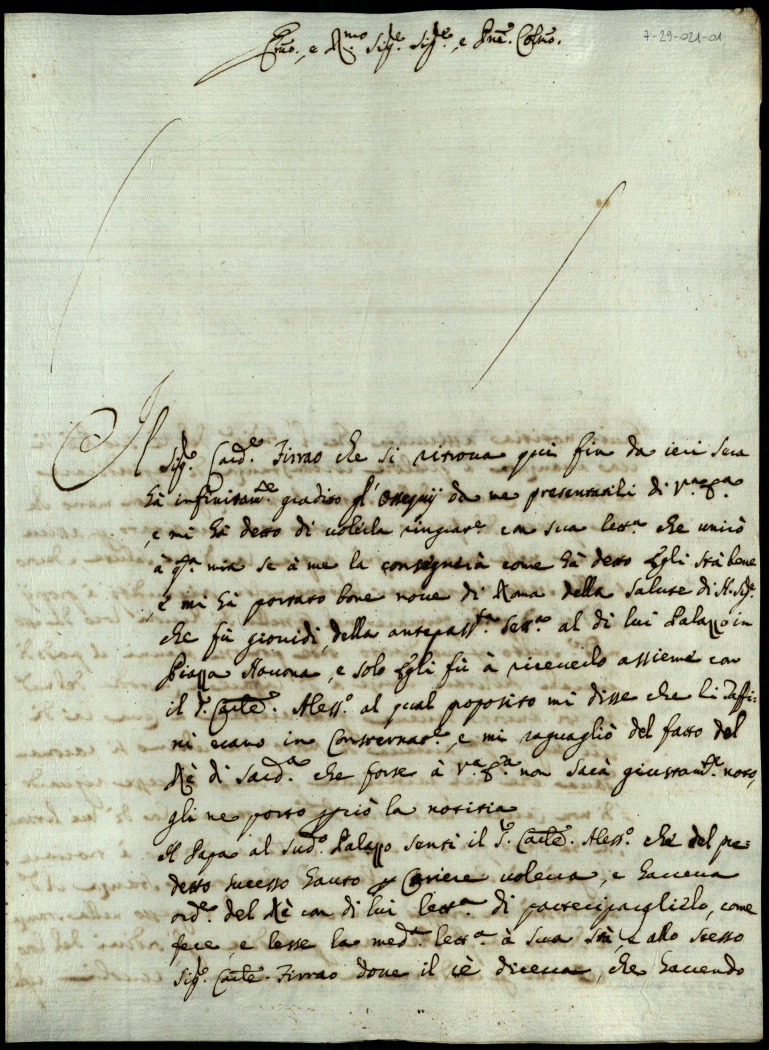 7-29-021-01
Emo, e Rmo Sigre Sigre, e Prne Colmo.
Il Sigr Carde Firrao che si ritroua qui fin da ieri sera
hà infinitamte gradito gl'ossequij da me presentatili di Va Ea
e mi hà detto di uolerla ringiare con sua letta che unirò
à qta mia se à me la consegnerà come hà detto Egli stà bene
e mi hà portato bone noue di Roma della salute di N. Sigr
che fù giouidi, della antepassta setta al di lui Palazzo in
Piazza Nauona, e solo Egli fù à riceuerlo assieme con
il Sr Carle Alesso al qual proposito mi disse che li Paffi-
ni erano in Consternare, e mi raguagliò del fatto del
Rè di Sarda che forse à Va Ea non sarà giustamte noto,
gli ne porto perciò la notitia
Il Papa al sudo Palazzo sentì il Sr Carle Alesso che del pre-
detto successo hauto per Coriere uoleua, e haueua
orde del Rè con di lui letta di parteciparglielo, come
fece, e lesse la meda letta à sua Stà, e allo stesso
Sigr Carle Firrao doue il rè diceua, che hauendo